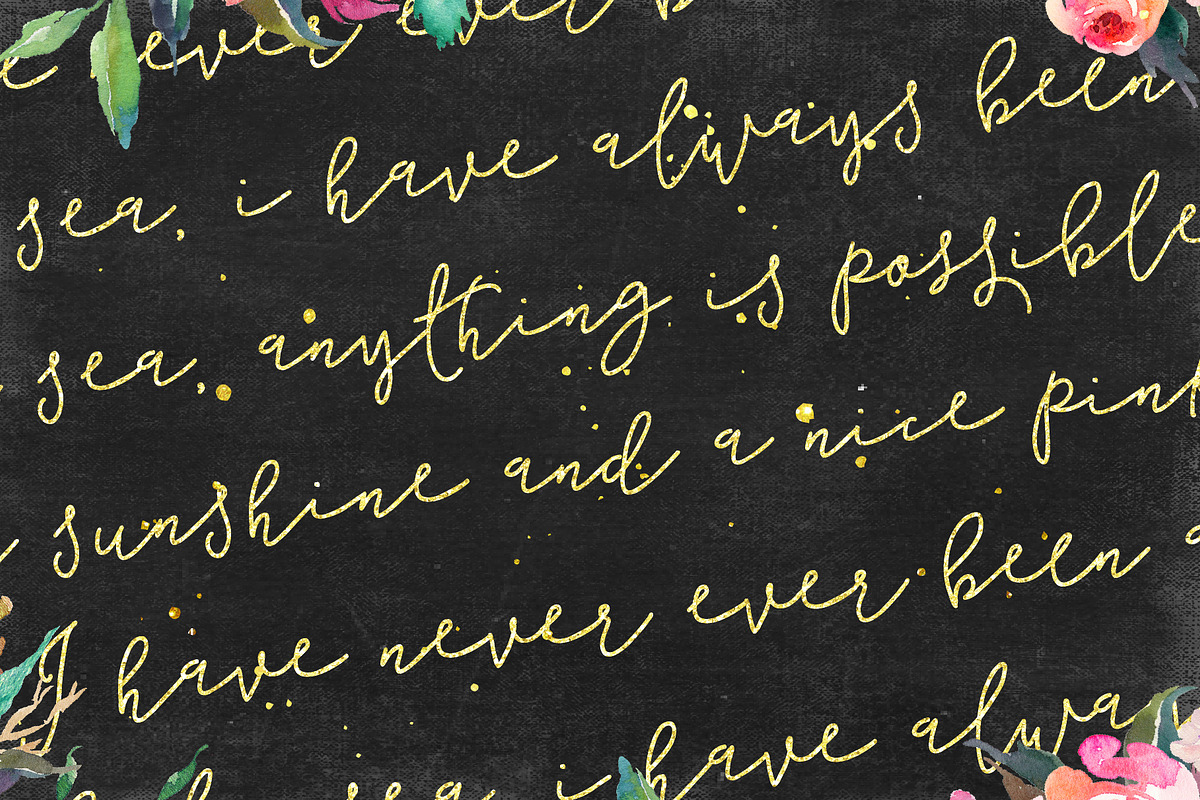 e ever ever b
sea, i have always been
sea, anything is possible
sunshine and a nice pink
I have never ever been a
sea i have alwa